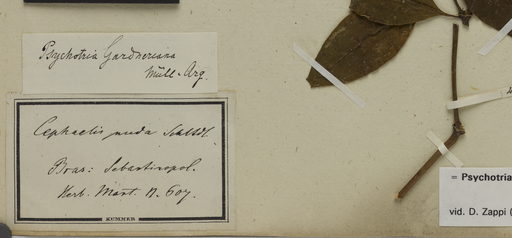 Psychotria Gardneriana
Müll-Arg.
Cephaelis nuda
Bras: Sebastinopol.
Herb. Mart. n. 607.
KUMMER
= Psychotria
vid. D. Zappi (